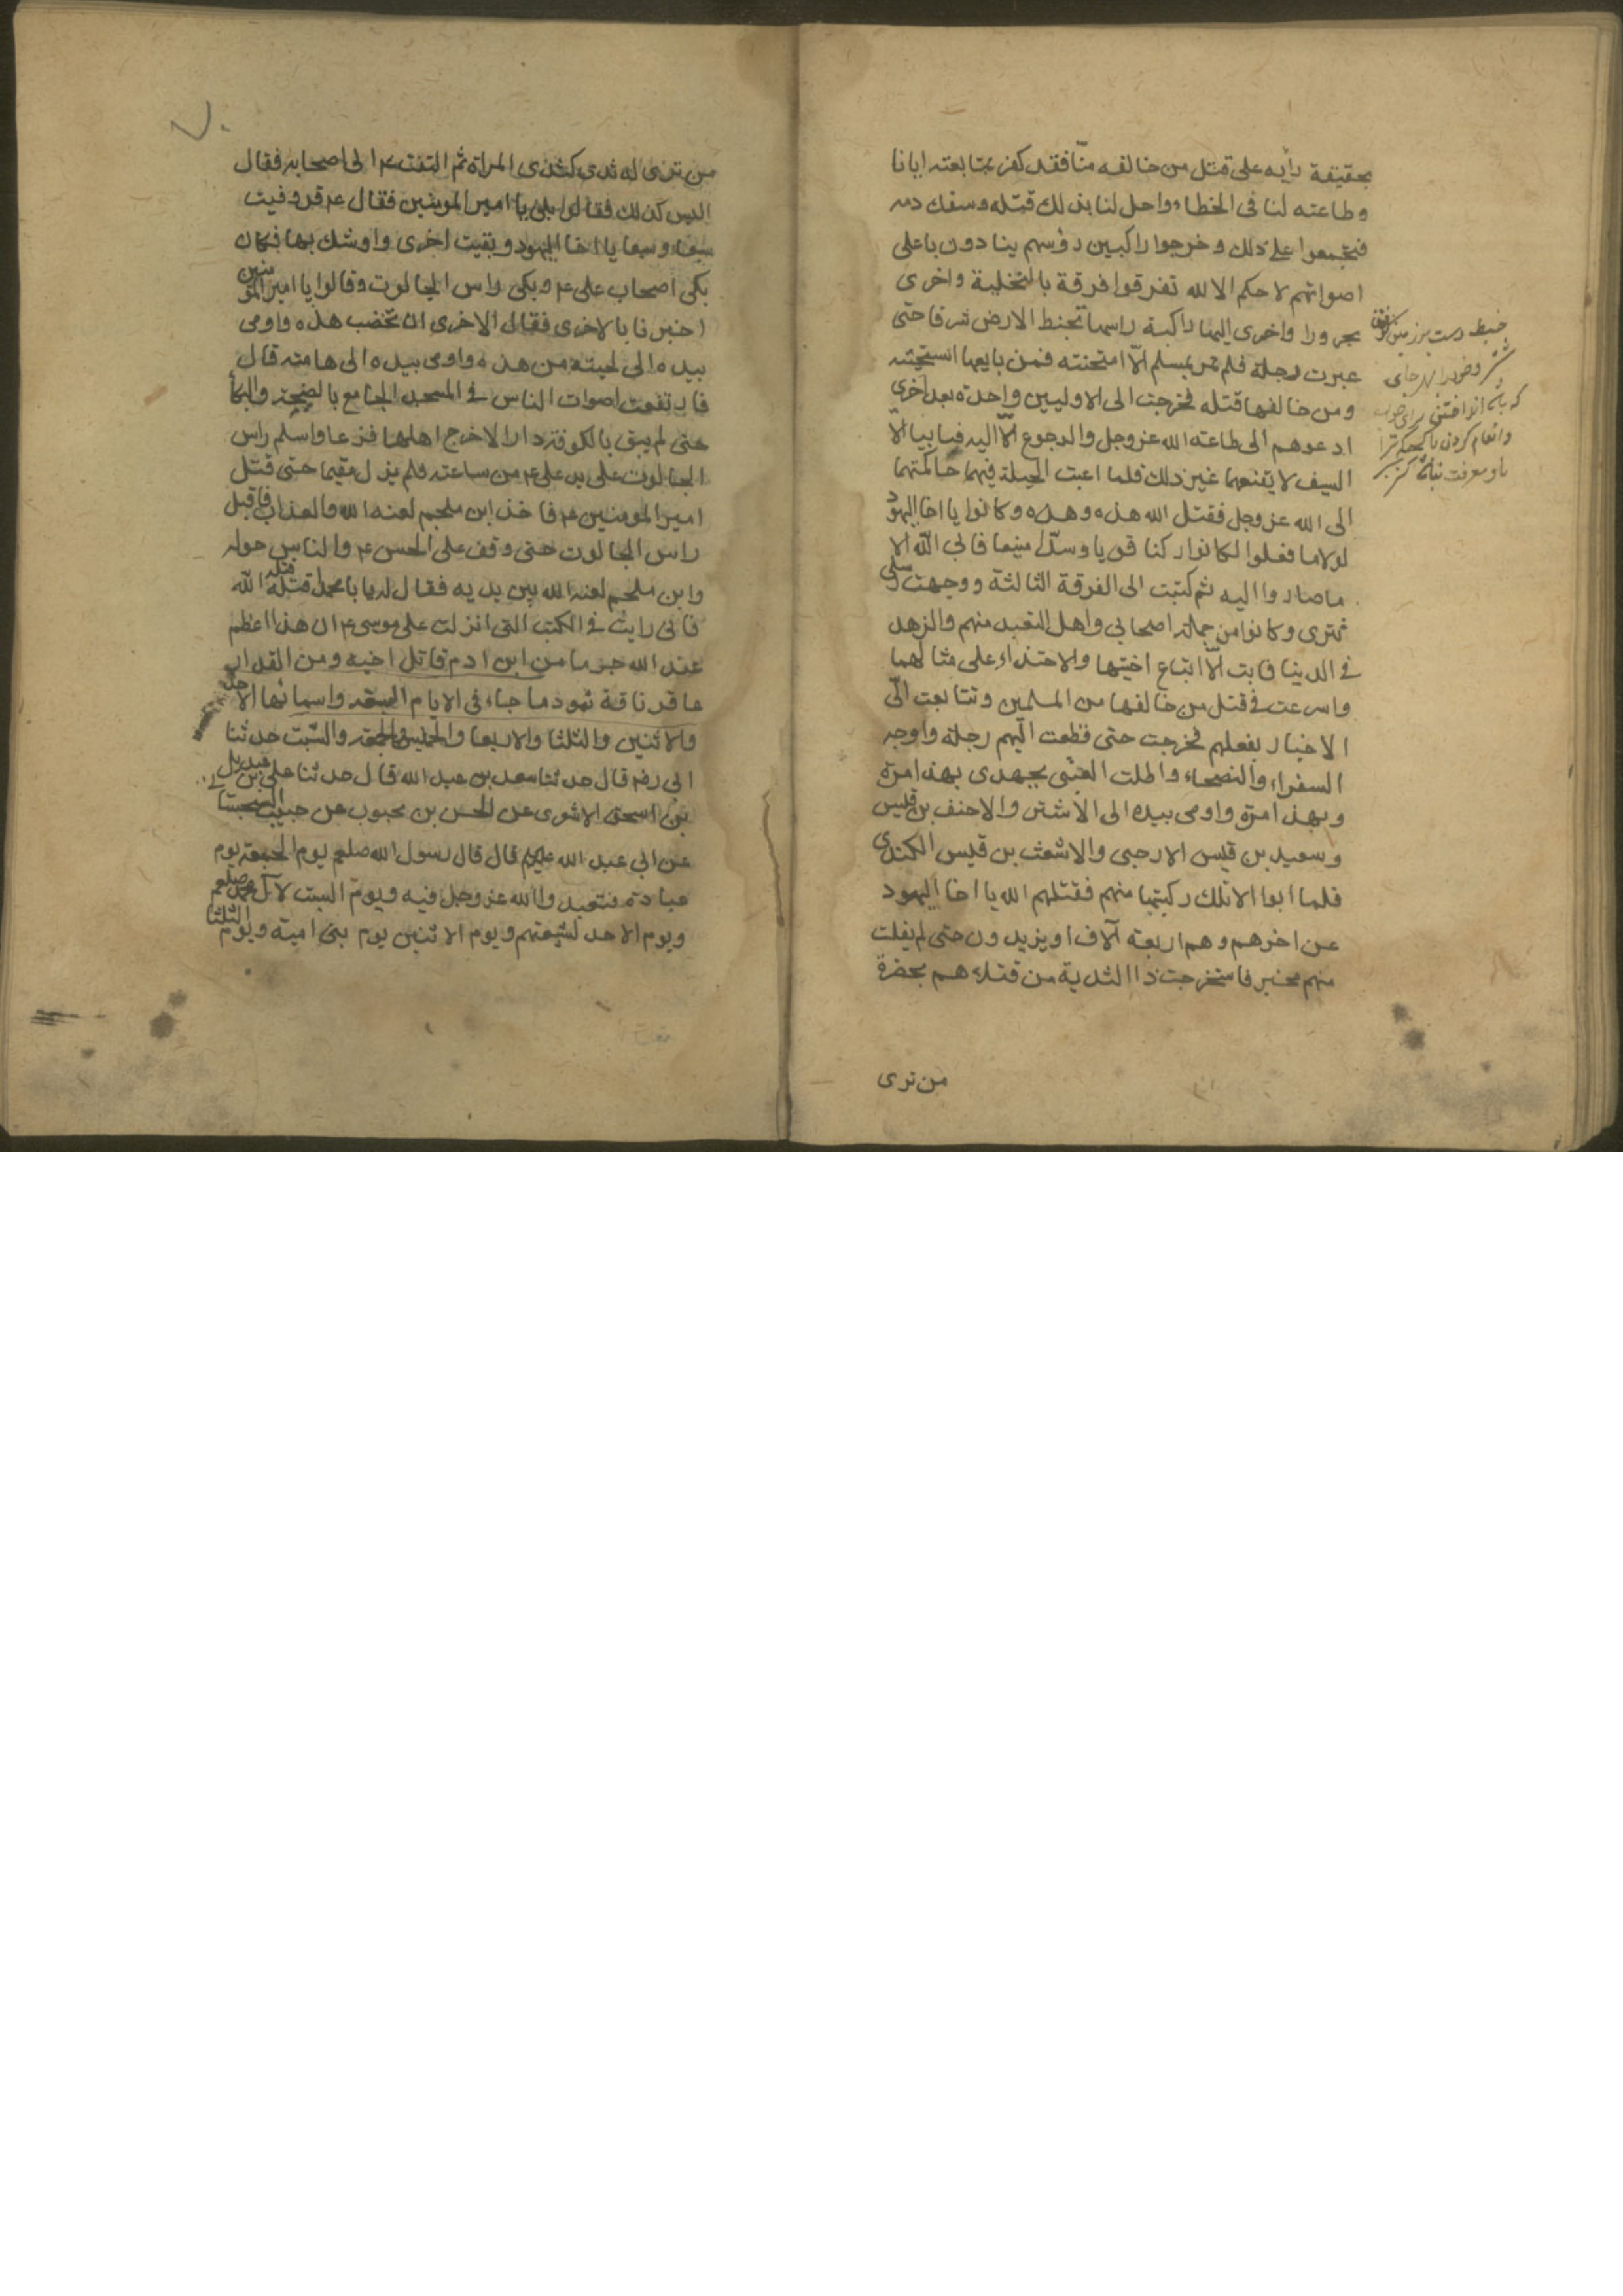 بحقيقة رأيه على قتل من خالفه منّا فقد كفر بمتابعته ايانا
وطاعته لنا فى الخطاء واحل لنا بذلك قتله وسفك دمه
فتجمعوا على ذلك وخرجوا راكبين رؤسهم ينادون باعلى
اصواتهم لا حكم الا لله تفرقوا فرقة بالنخلية واخرى
بحرورا واخرى اليها راكبة راسها تخبط الارض شرقا حتى
عبرت دجلة فلم تمر بمسلم الّا امتحنته فمن بايعها استحيته
ومن خالفها قتله فخرجت الى الاوليين واحدة بعد اخرى
ادعوهم الى طاعته الله عز وجل والرجوع الّا اليه فيابيا الّا
السيف لا يقنعهما غير ذلك فلما اعيت الحيلة فيهما حاكمتهما
الى الله عز وجل فقتل الله هذه وهذه وكانوا يا اخا اليهود
لولا ما فعلوا لكانوا ركنا قويا وسدّا منيعا فابى الله الا
ما صاروا اليه ثم كتبت الى الفرقة الثالثة ووجهت رسلى
تترى وكانوا من جملة اصحابى واهل التعبد منهم والزهد
فى الدينا فابت الّا اتباع اختيها والاحتذاء على مثالهما
واسرعت فى قتل من خالفها من المسلمين وتتابعت الىّ
الاخبار بفعلهم فخرجت حتى قطعت اليهم دجلة واوجه
السفراء والنصحاء واطلب العتبى بجهدى بهذا مرة
وبهذا مرة واومى بيده الى الاشتر والاحنف بن قيس
وسعيد بن قيس الارحبى والاشعث بن قيس الكندى
فلما ابوا الا تلك ركبتها منهم فقتلهم الله يا اخا اليهود
عن اخرهم وهم اربعة آلاف او يزيدون حتى لم يفلت
منهم مخبر فاستخرجت ذا الثدية من قتلاهم بحضرة
من ترى
خبط دست بر زمين كوفتن
من ترى له ثدى كثدى المراة ثم التفت ع الى اصحابه فقال
اليس كذلك فقالوا بلى يا امير المومنين فقال ع قد وفيت
سبعا وسبعا يا اخا اليهود وبقيت اخرى واوشك بها فكان
بكى اصحاب على ع وبكى راس الجالوت وقالوا يا امير المومنين
اخبرنا بالاخرى فقال الاخرى ان تخضب هذه واومى
بيده الى لحيته من هذه واومى بيده الى هامته قال
فارتفعت اصوات الناس فى المسجد الجامع بالضجة والبكا
حتى لم يبق بالكوفة دار الا خرج اهلها فزعا واسلم راس
الجالوت على يد على ع من ساعته فلم يزل مقيما حتى قتل
امير المومنين ع فاخذ ابن ملجم لعنه الله والعذاب فاقبل
راس الجالوت حتى وقف على الحسن ع والناس حوله
وابن ملجم لعنه الله بين يديه فقال له يا با محمد اقتله قتله الله
فانى رايت فى الكتب التى انزلت على موسى ع ان هذا اعظم
عند الله جرما من ابن ادم قاتل اخيه ومن القدار
عاقر ناقة ثمود ما جاء فى الايام السبعه واسمائها الاحد
والاثنين والثلثا والاربعا والخميس والجمعه والسّبت حدثنا
ابى رضه قال حدثنا سعد بن عبد الله قال حدثنا عبد الله بن على
بن اسحق الاشعرى عن الحسن بن محبوب عن حبيب السجستا
عن ابى عبد الله عليكم قال قال رسول الله صلعم يوم الجمعة يوم
عبادة فتعبدوا الله عز وجل فيه ويوم السبت لآل محمد صلعم
ويوم الاحد لشيعتهم ويوم الاثنين يوم بنى امية ويوم الثلثا